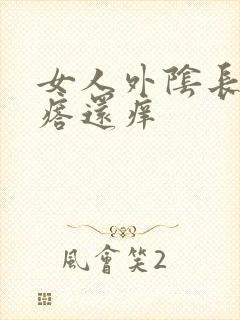 女人外陰長
痞還痒
風會笑2